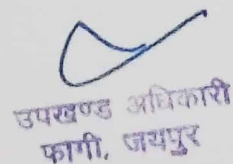 उपखण्ड अधिकारी
फागी, जयपुर